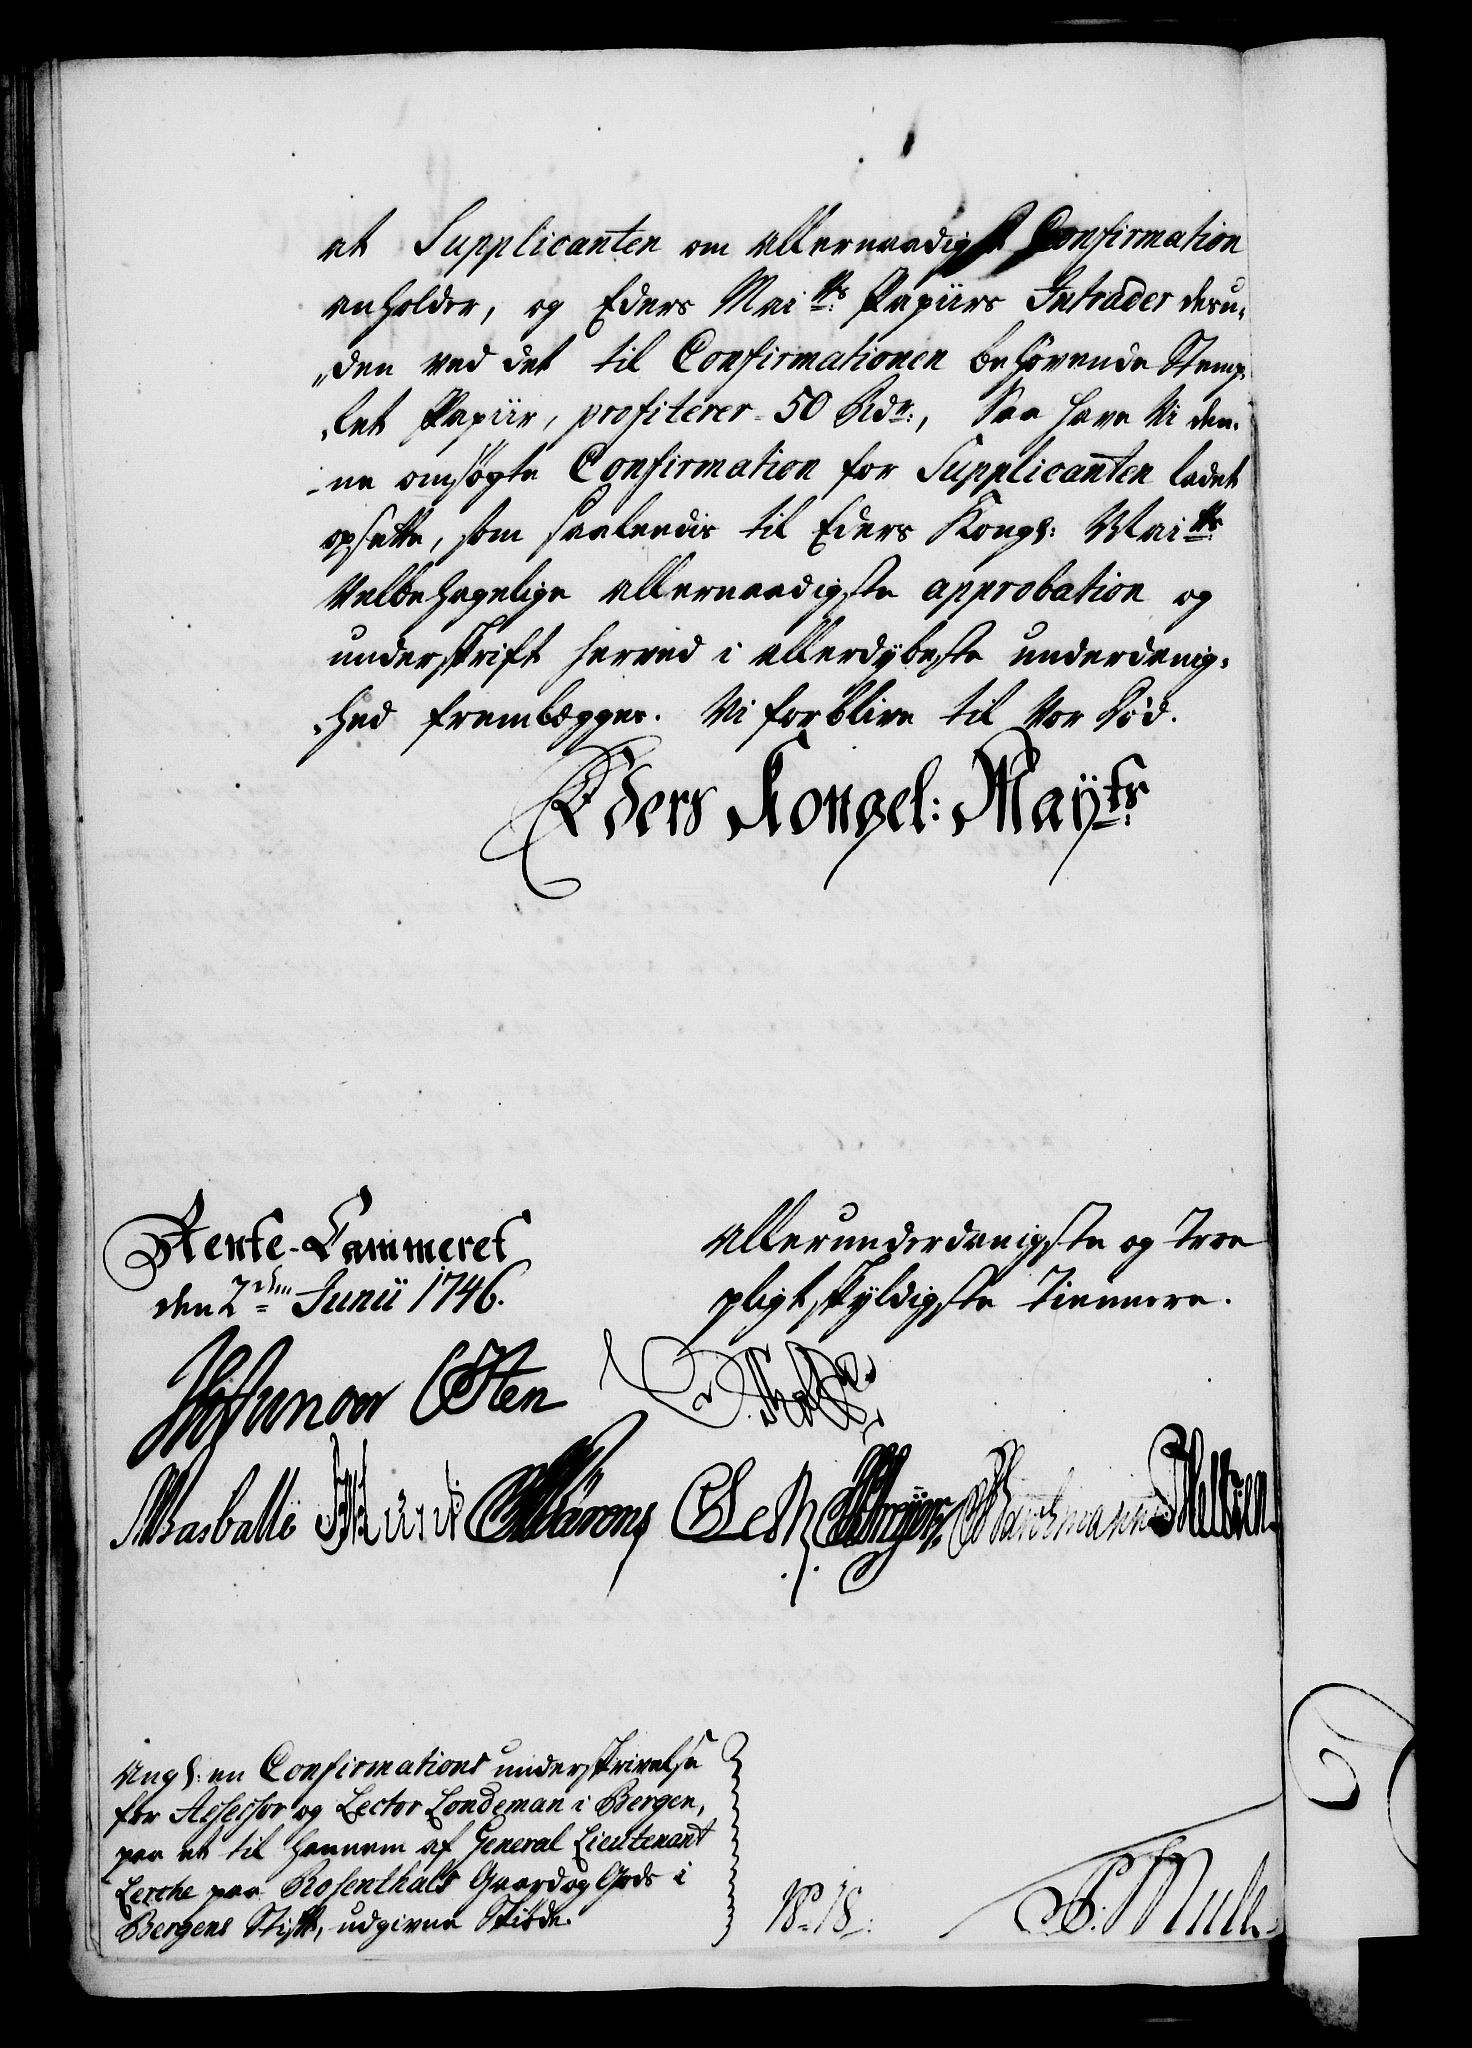 at Supplicanten om allernaadigst Confirmation
anholder, og Eders Mai^ts: Papiirs Intrader desu„
„den ved det til Confirmationen behövende Stemp„
„let Papiir, profiterer 50 Rdr:, Saa have Vi den„
„ne omsögte Confirmation for Supplicanten ladet
opsette, som saaleedis til Eders Kongl: Mai^ts:
Velbehagelige allernaadigste approbation og
underskrift herved i allerdybeste underdanig„
„hed fremlægges. Vi forblive til Vor Död.
Eders Kongel: Maÿts:
Rente-Cammeret
den 2den Junii 1746.
Allerunderdanigste og Troe
pligtskyldigste Tiennere.
Osten
Basballe
Angl: en Confirmations underskrivelse
for Assessor og Lector Londeman i Bergen,
paa et til hannem af General Lieutenant
Lerche paa Rosenthals Gaard og Gods i
Bergens Stift, udgivne Skiöde.
N° 18: